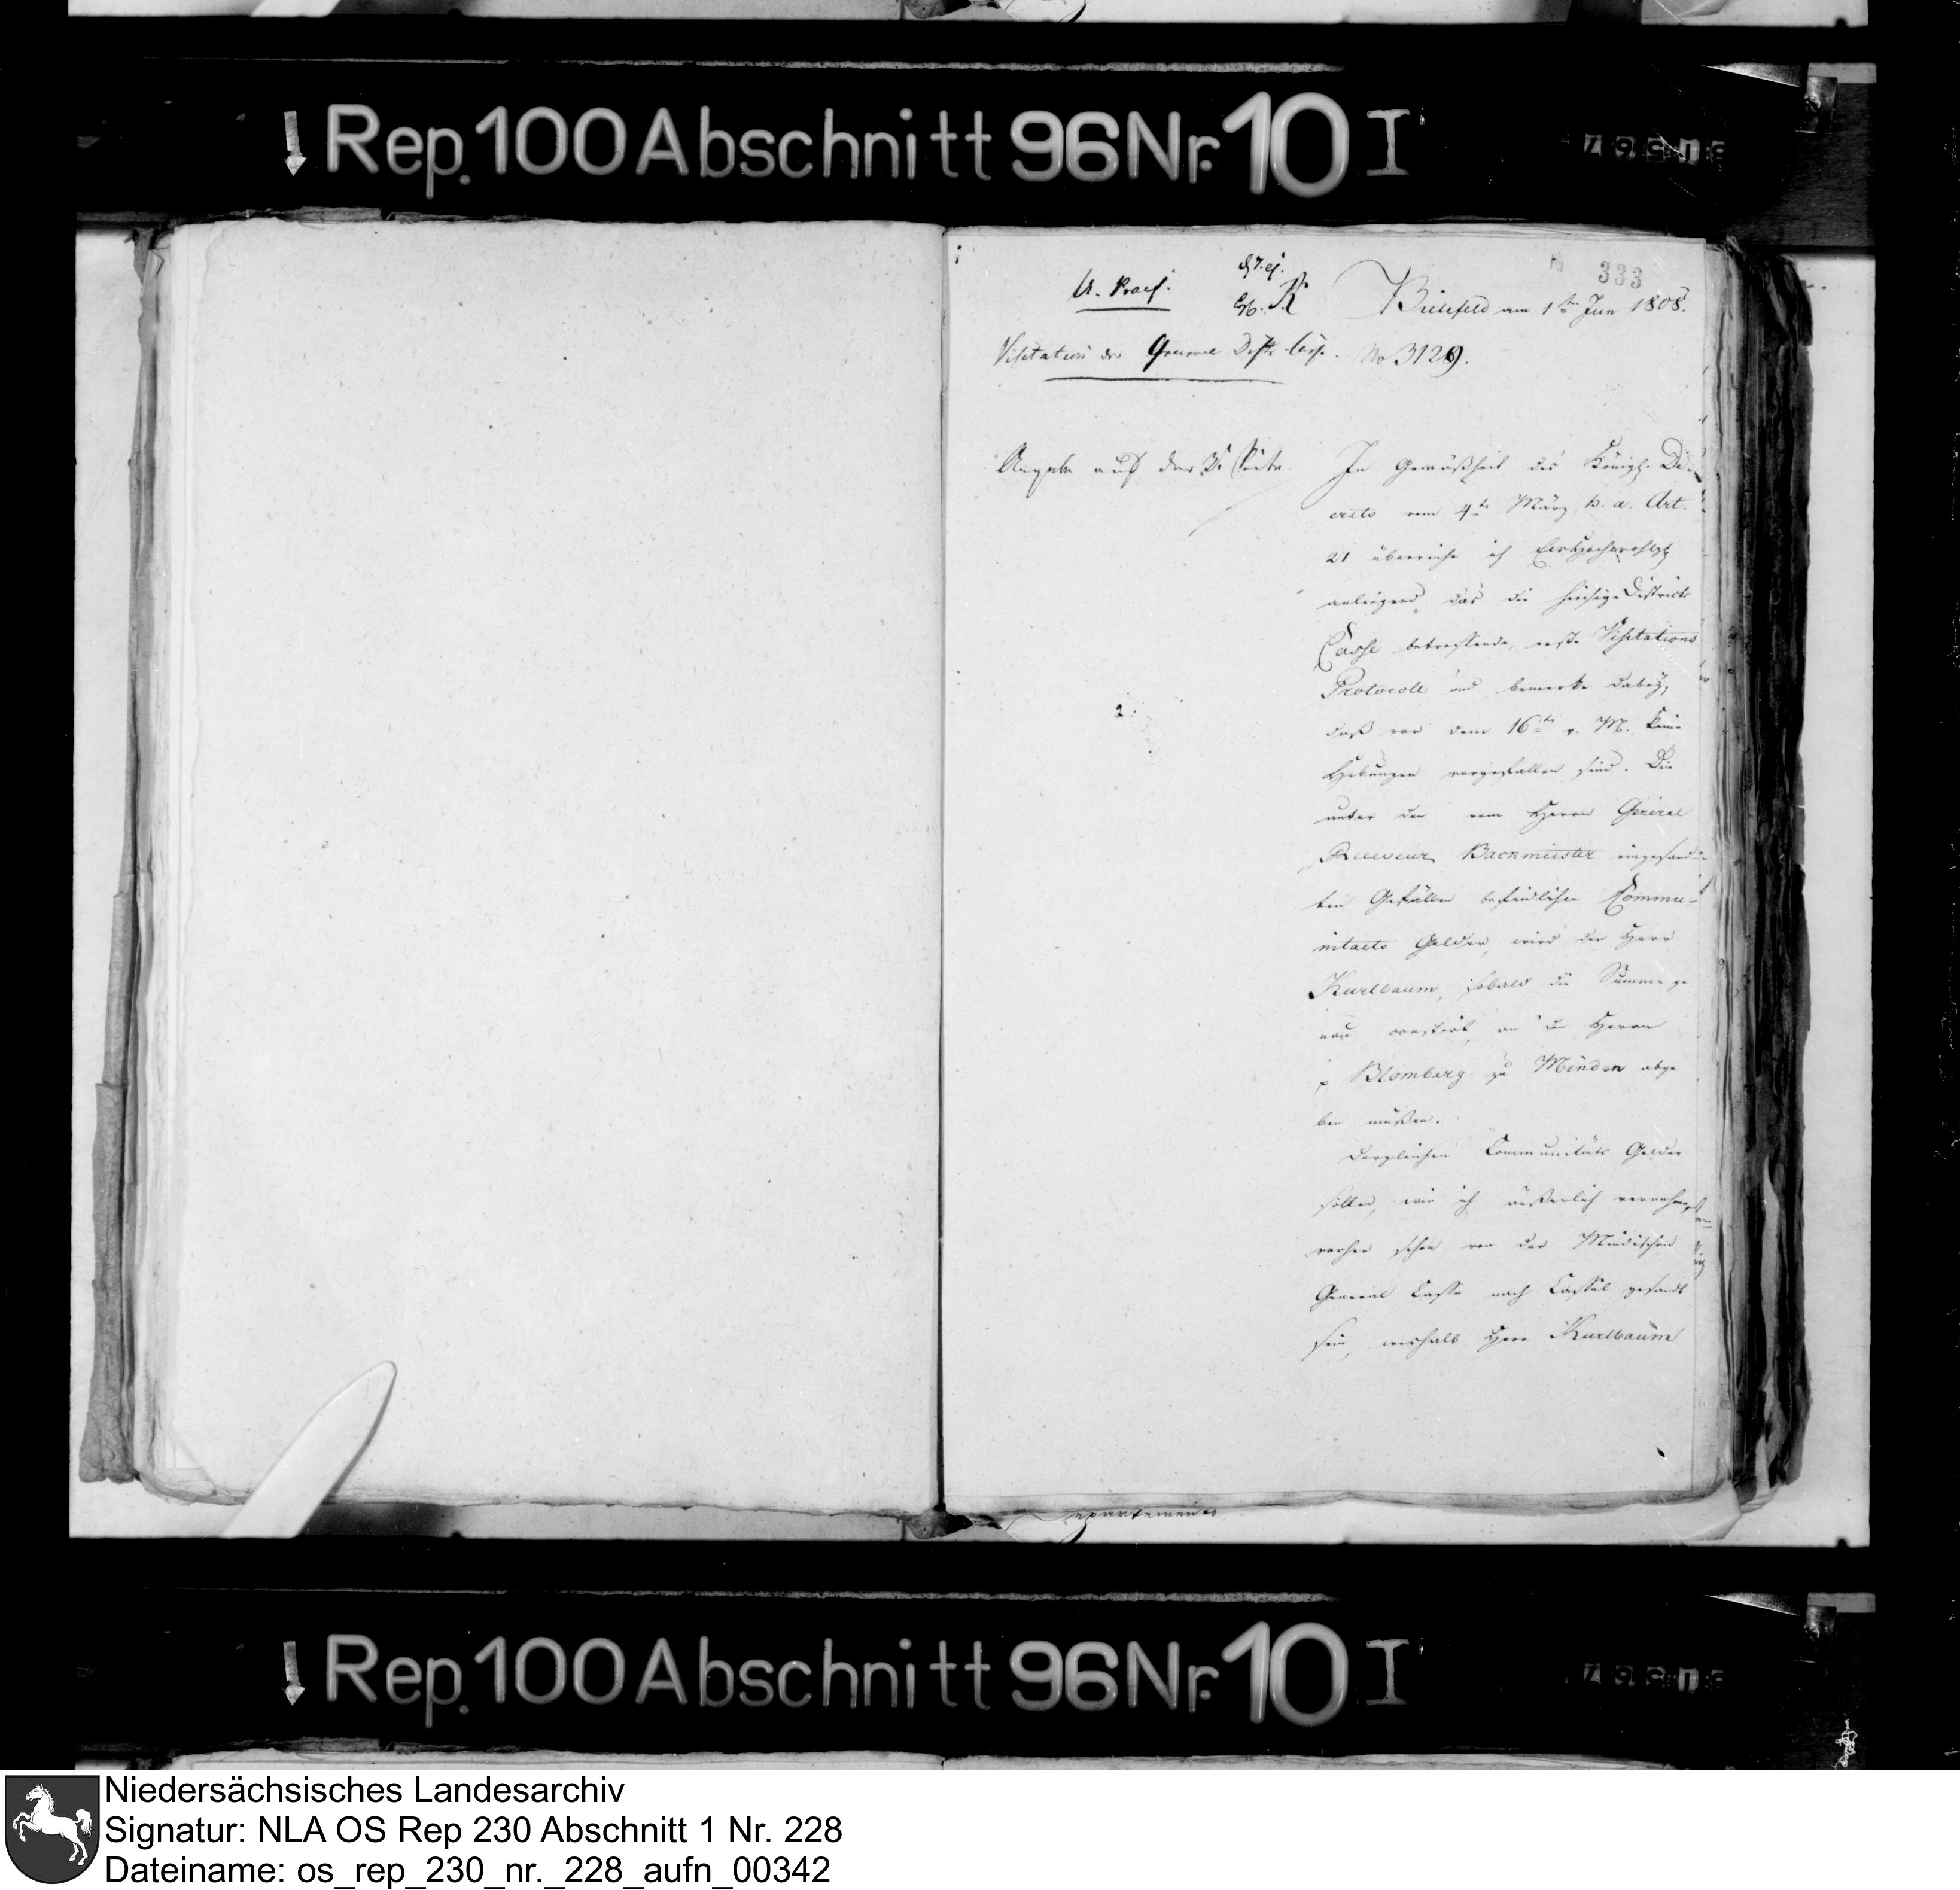 Rep. 100 Abschnitt 96 Nr. 10 I
333
Bielefeld am 1ten Jun 1808.
Visitation der General Distr. Casse. No 3129.
auf der
In Gemäßheit des Königl. De-
crets vom 4ten März h. a. Art.
21 überreiche ich
anliegend das die hiesige Districts
Casse betreffende, erste Visitations
Protocoll und bemerke dabey,
daß vor dem 16ten v. M. keine
Hebungen vorgefallen sind. Die
unter den vom Herrn General
Receveur Backmeister eingesand-
ten Gefällen befindlichen Commu-
nitaets Gelder, wird der Herr
Kurlbaum, sobald die Summe ge
nau constirt, an den Herrn
p Blomberg zu Minden abge
ben müßen.
Dergleichen Communitäts Gelder
sollen, wie ich äußerlich vernehme,
vorher schon von der Mindischen
General Casse nach Cassel gesandt
sein, weshalb Herr Kurlbaum
Departements
Rep. 100 Abschnitt 96 Nr. 10 I
Niedersächsisches Landesarchiv
Signatur: NLA OS Rep 230 Abschnitt 1 Nr. 228
Dateiname: os_rep_230_nr._228_aufn_00342